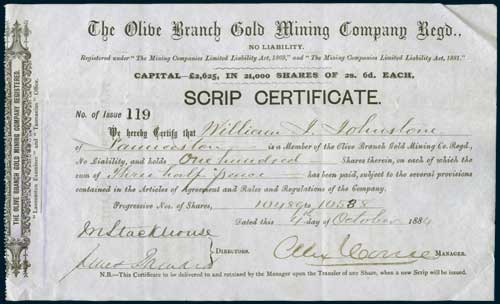 The Olive Branch Gold Mining Company Regd.,
NO LIABILITY.
Registered under "The Mining Companies Limited Liability Act, 1869," and "The Mining Companies Limited Liability Act, 1881."
CAPITAL £2,625, IN 21,000 SHARES OF 2s. 6d. EACH.
SCRIP CERTIFICATE.
No. of Issue 119
We hereby Certify that William J. Johnstone
of Launceston is a Member of the Olive Branch Gold Mining Co. Regd.,
No Liability, and holds One hundred Shares therein, on each of which the
sum of Three half pence has been paid, subject to the several provisions
contained in the Articles of Agreement and Rules and Regulations of the Company.
Progressive Nos. of Shares, 10489 10588
Dated this 4th day of October 1884
J. Stackhouse
DIRECTORS.
MANAGER.
N.B.—This Certificate to be delivered to and retained by the Manager upon the Transfer of any Share, when a new Scrip will be issued.
THE OLIVE BRANCH GOLD MINING COMPANY REGISTERED.
"Launceston Examiner" and "Tasmanian" Office.